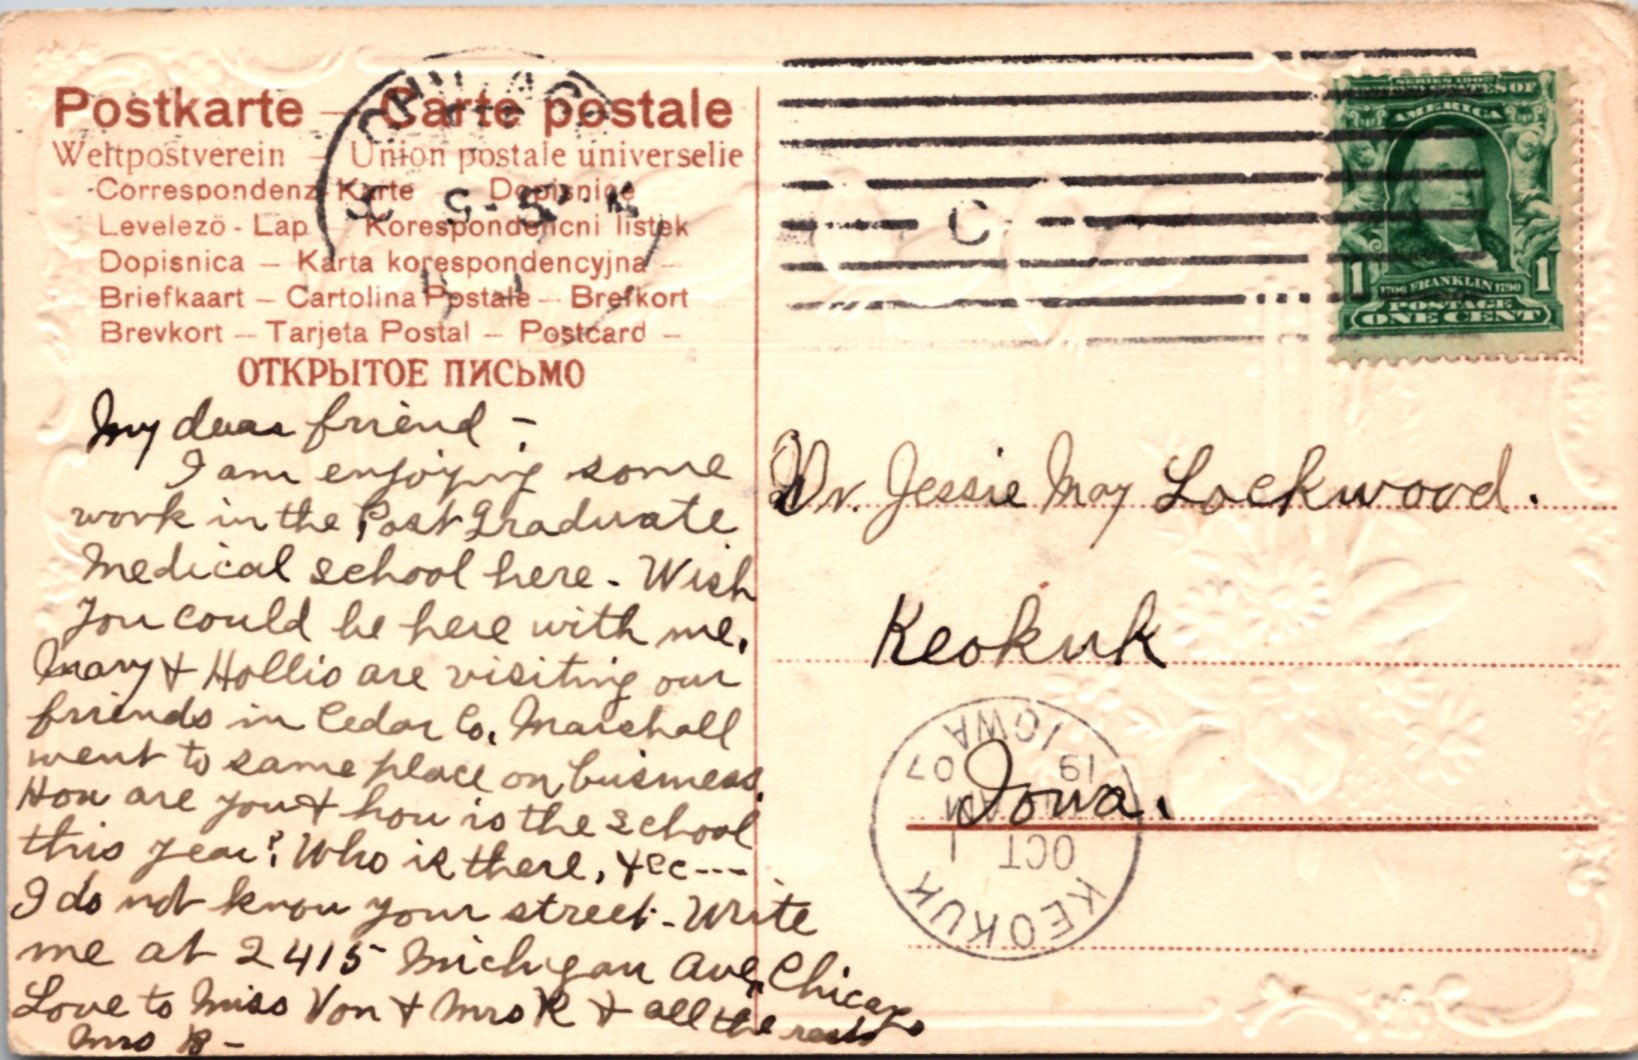 Postkarte – Carte postale
Weltpostverein – Union postale universelle
Correspondenz Karte – Dopisnice
Levelezö - Lap – Korespondencni listek
Dopisnica – Karta korespondencyjna –
Briefkaart – Cartolina Postale – Brefkort
Brevkort – Tarjeta Postal – Postcard –
ОТКРЫТОЕ ПИСЬМО
My dear friend –
I am enjoying some
work in the Post Graduate
Medical school here - Wish
you could be here with me.
Mary & Hollis are visiting our
friends in Cedar Co. Marshall
went to same place on business.
How are you & how is the school
this year? Who is there, &cc ---
I do not know your street - Write
me at 2415 Michigan Ave, Chicago
Love to Miss Von & Mrs R & all the rest
Mrs B –
C
SERIES 1902
UNITED STATES OF
AMERICA
1706 FRANKLIN 1790
1 1
POSTAGE
ONE CENT
Dr. Jessie May Lockwood.
Keokuk
Iowa.
KEOKUK
OCT 1
AM
19 07
IOWA